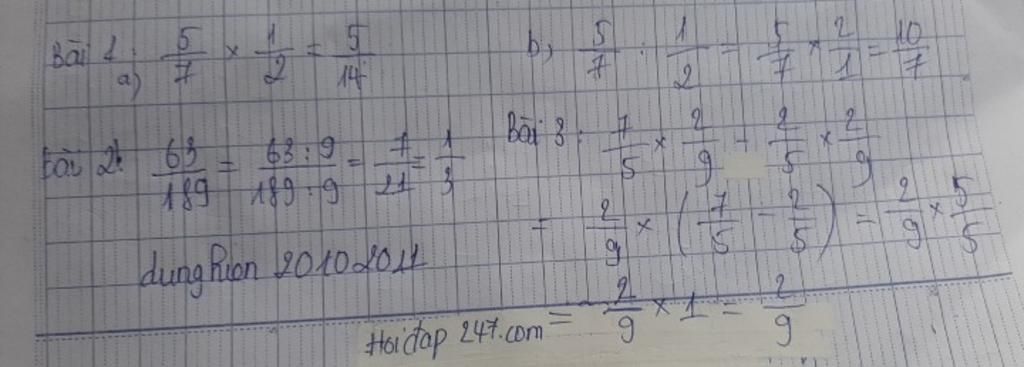 Bài 1: a) 5/7 × 1/2 = 5/14
b, 5/7 : 1/2 = 5/7 × 2/1 = 10/7
Bài 2: 63/189 = 63:9/189:9 = 7/21 = 1/3
Bài 3: 7/5 × 2/9 - 2/5 × 2/9
= 2/9 × (7/5 - 2/5) = 2/9 × 5/5
= 2/9 × 1 = 2/9
20102011
Hoidap 247.com